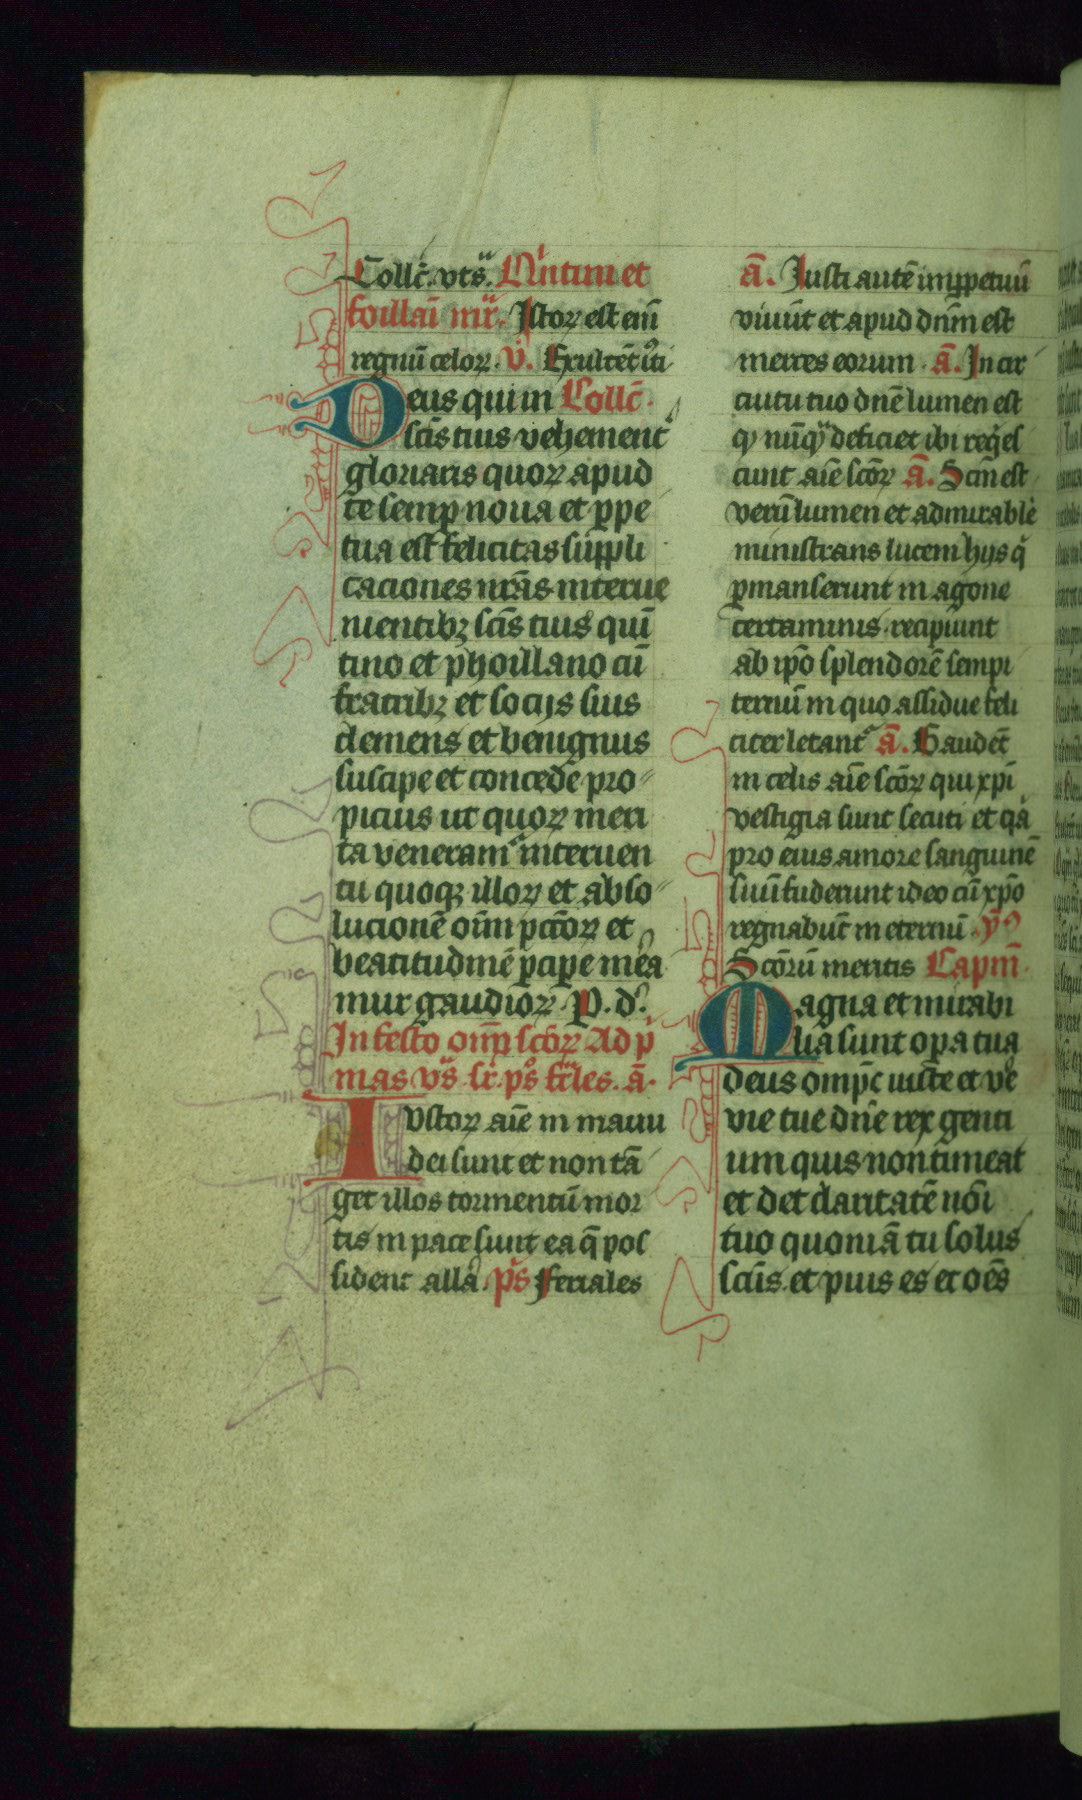 Collc̄. vts̄. Q̇intini et
foillani mr̄. Istoꝝ est enī
regnū celoꝝ. v̄. Exultēt iti
Deus qui in Collc̄.
scīs tuis vehementˢ
gloriaris quoꝝ apud
te semꝑ noua et ꝑpe
tua est felicitas suppli
caciones nrās interue
nientibꝫ scīs tuis quī
tino et phoillano cū
fratribꝫ et socijs suis
clemens et benignus
suscipe et concede pro
picius ut quoꝝ meri
ta veneramˢ interuen
tu quoqꝫ illoꝝ et abso
lucionē oīm pctōꝝ et
beatitudinē ꝑcipe mea
mur gaudioꝝ. P. d.
In festo om̄ scōꝝ Ad p̄
mas vs̄. sr̄. ps̄ fr̄les. ā.
Iustoꝝ aīe in manu
dei sunt et non tā
get illos tormentū mor
tis in pace sunt ea q̄ pos
sident alla. ps̄ feriales
ā. Iusti autē inꝑpetuū
viuūt et apud dnm̄ est
merces eorum. ā. In ar
ciuitu tuo dnē lumen est
qꝫ nūqꝫ deficiet ibi reqˢes
cunt aīe scōꝝ ā. Scīm est
verū lumen et admirabile
ministrans lucem hijs q̄
ꝑmanserunt in agone
certaminis. recipiunt
ab ipō splendorē sempi
ternū in quo assidue feli
citer letantˢ ā. Gaudēt
in celis aīe scōꝝ qui xpī
vestigia sunt secuti et qa
pro eius amore sanguinē
suū fuderunt ideo cū xpō
regnabūt in eternū. v̄
Scōrū meritis Capm̄.
Magna et mirabi
lia sunt oꝑa tua
deus ompc̄ iuste et ve
vie tue dnē rex genti
um quis non timeat
et det claritatē noī
tuo quoniā tu solus
scūs. et pius es et oēs